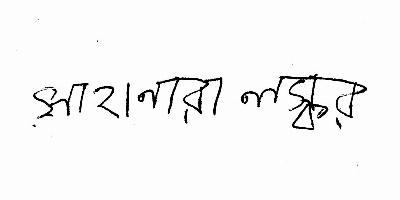 সাহানারা লস্কর